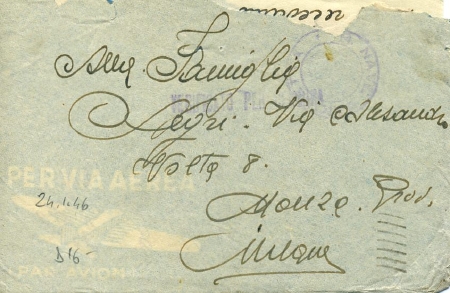 Alla Famiglia
Negri. Via Alessandro
Volta 8.
Monza. Prov.
Milano
VERIFICATO PER
PER VIA AEREA
24.1.46
D16-
PAR AVION